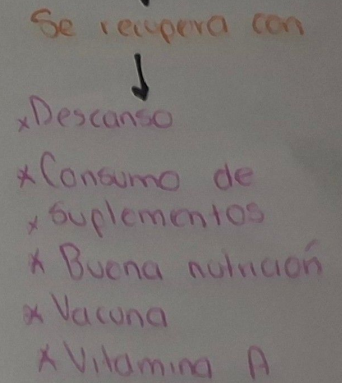 Se recupera con
x Descanso
x Consumo de
x suplementos
x Buena nutrición
x Vacuna
x Vitamina A